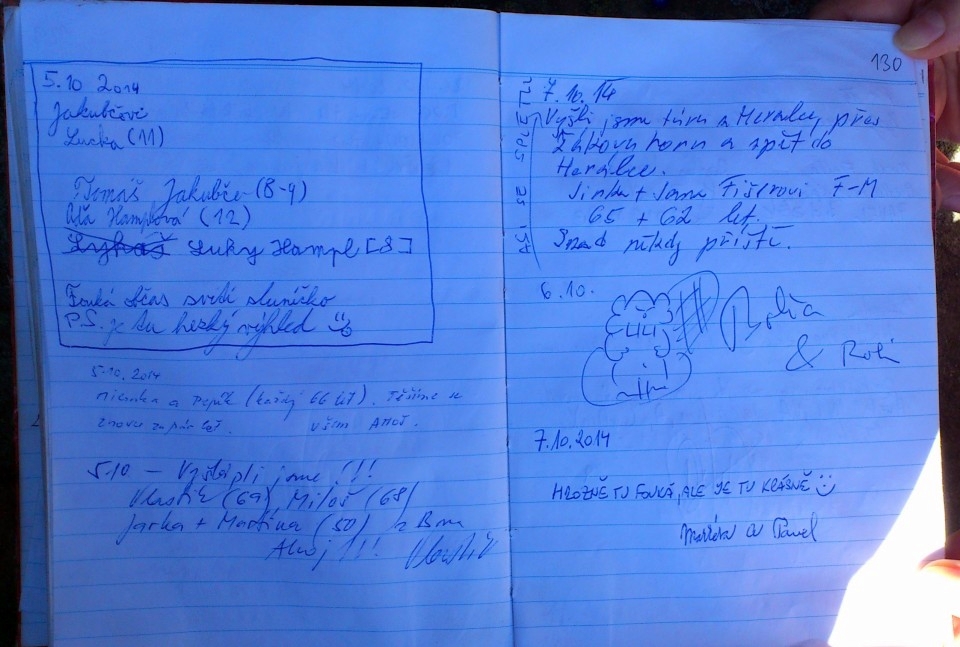 5.10 2014
Jakubčovi
Lucka (11)
Tomáš Jakubčo (8-9)
Hamplová (12)
Luky Hampl [8]
Fouká občas svítí sluníčko
P.S. je tu hezký výhled
5.10.2014
a Pepík (každý 66 let). Těšíme se
znovu za pár let. Všem AHOJ.
5.10 – Vyšlápli jsme !!!
Vlastík (69), Miloš (68)
Jarka + Martina (50) z Brna
Ahoj !!!
130
ASI SE SPLETLI
7.10.14
Vyšli jsme túru z Herálce, přes
Žákovu horu a zpět do
Herálce.
Jirka + Jana Fišerovi F-M
65 + 62 let.
Snad někdy příští.
6.10.
& Robi
7.10.2014
HROZNĚ TU FOUKÁ, ALE JE TU KRÁSNĚ
Markéta a Pavel